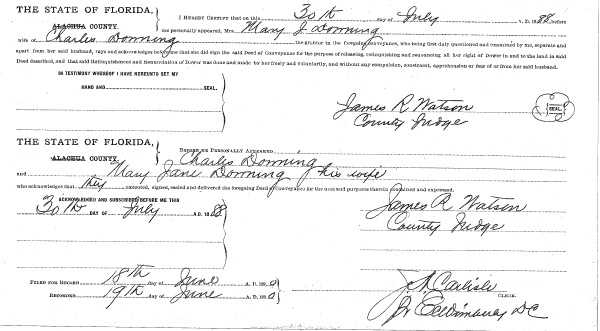 THE STATE OF FLORIDA,
ALACHUA COUNTY.
I HEREBY CERTIFY that on this 30th day of July A. D. 1888, before
me personally appeared, Mrs. Mary J Donning
wife of Charles Donning the grantor in the foregoing conveyance, who being first duly questioned and examined by me, separate and
apart from her said husband, says and acknowledges before me that she did sign the said Deed of Conveyance for the purpose of releasing, relinquishing and renouncing all her right of Dower in and to the land in said
Deed described, and that said Relinquishment and Renunciation of Dower was done and made by her freely and voluntarily, and without any compulsion, constraint, apprehension or fear of or from her said husband.
IN TESTIMONY WHEREOF I HAVE HEREUNTO SET MY
HAND AND SEAL.
James R. Watson
County Judge
SEAL.
THE STATE OF FLORIDA,
ALACHUA COUNTY.
BEFORE ME PERSONALLY APPEARED
Charles Donning
and Mary Jane Donning his wife
who acknowledges that they executed, signed, sealed and delivered the foregoing Deed of Conveyance for the uses and purposes therein contained and expressed.
ACKNOWLEDGED AND SUBSCRIBED BEFORE ME THIS
30th DAY OF July A.D. 1888
James R Watson
County Judge
FILED FOR RECORD 18th day of June A. D. 1890
RECORDED 19th day of June A. D. 1890
J. A. Carlisle
CLERK.
DC